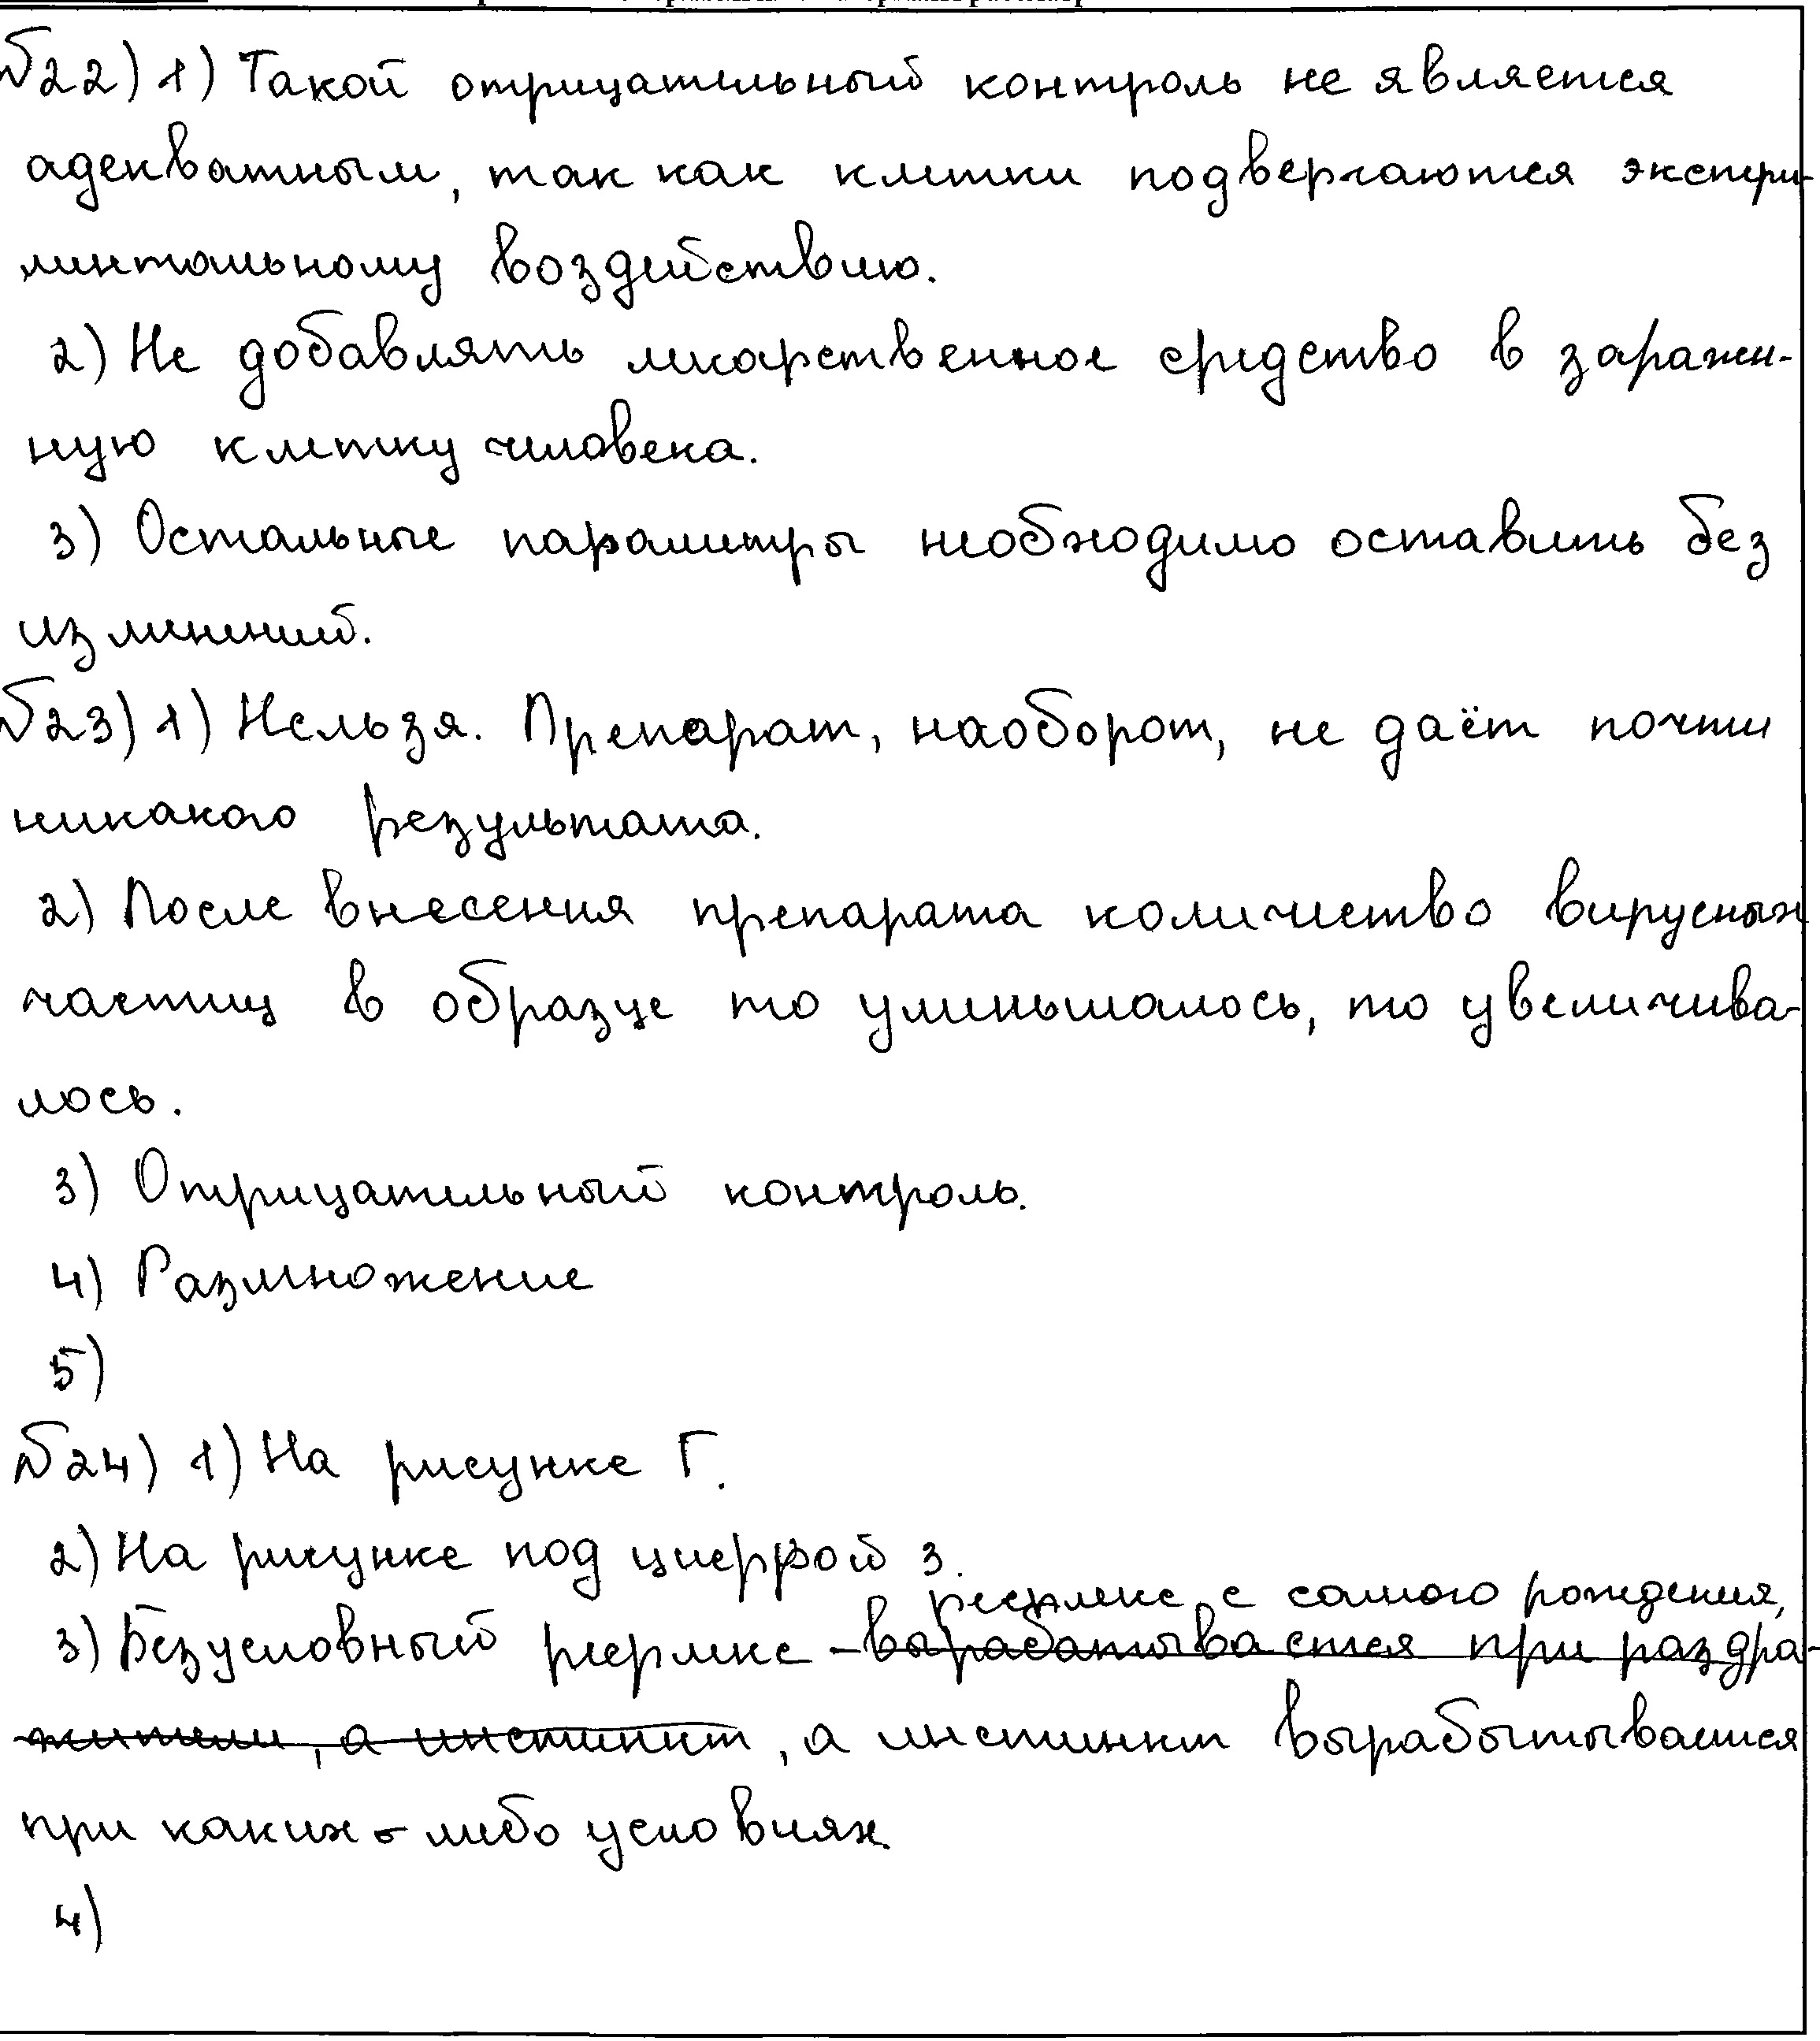 №22) 1) Такой отрицательный контроль не является
адекватным, так как клетки подвергаются экспери-
ментальному воздействию.
2) Не добавлять лекарственное средство в заражен-
ную клетку человека.
3) Остальные параметры необходимо оставить без
изменений.
№23) 1) Нельзя. Препарат, наоборот, не даёт почти
никакого результата.
2) После внесения препарата количество вирусных
частиц в образце то уменьшалось, то увеличива-
лось.
3) Отрицательный контроль.
4) Размножение
5)
№24) 1) На рисунке Г.
2) На рисунке под цифрой 3.
рефлекс с самого рождения,
3) Безусловный рефлекс - вырабатывается при раздра-
жители, а инстинкт, а инстинкт вырабытывается
при каких-либо условиях.
4)